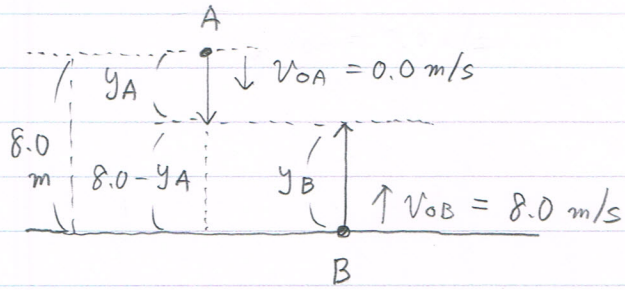 A
yA
↓ vOA = 0.0 m/s
8.0
m
8.0-yA
yB
↑ vOB = 8.0 m/s
B